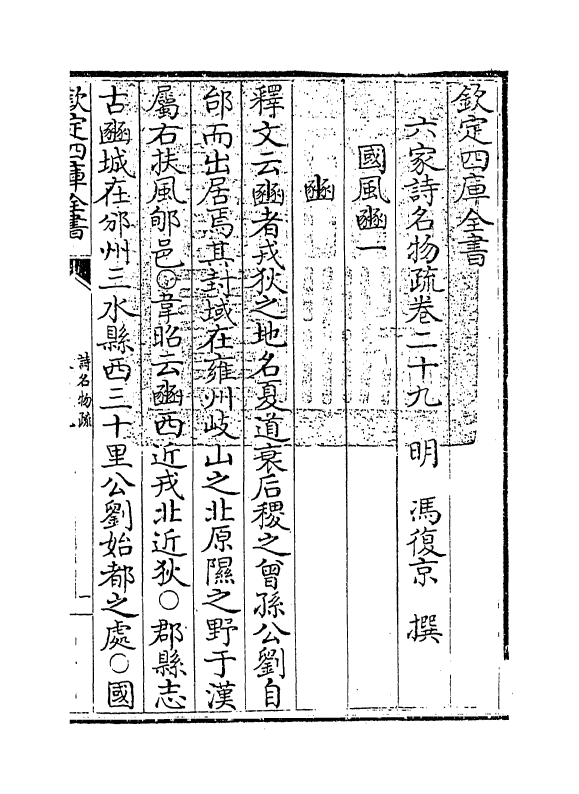 欽定四庫全書
六家詩名物疏卷二十九　明　馮復京　撰
國風豳一
豳
釋文云豳者戎狄之地名夏道衰后稷之曾孫公劉自
邰而出居焉其封域在雍州岐山之北原隰之野于漢
屬右扶風郇邑○韋昭云豳西近戎北近狄○郡縣志
古豳城在邠州三水縣西三十里公劉始都之處○國
欽定四庫全書
詩名物疏
一